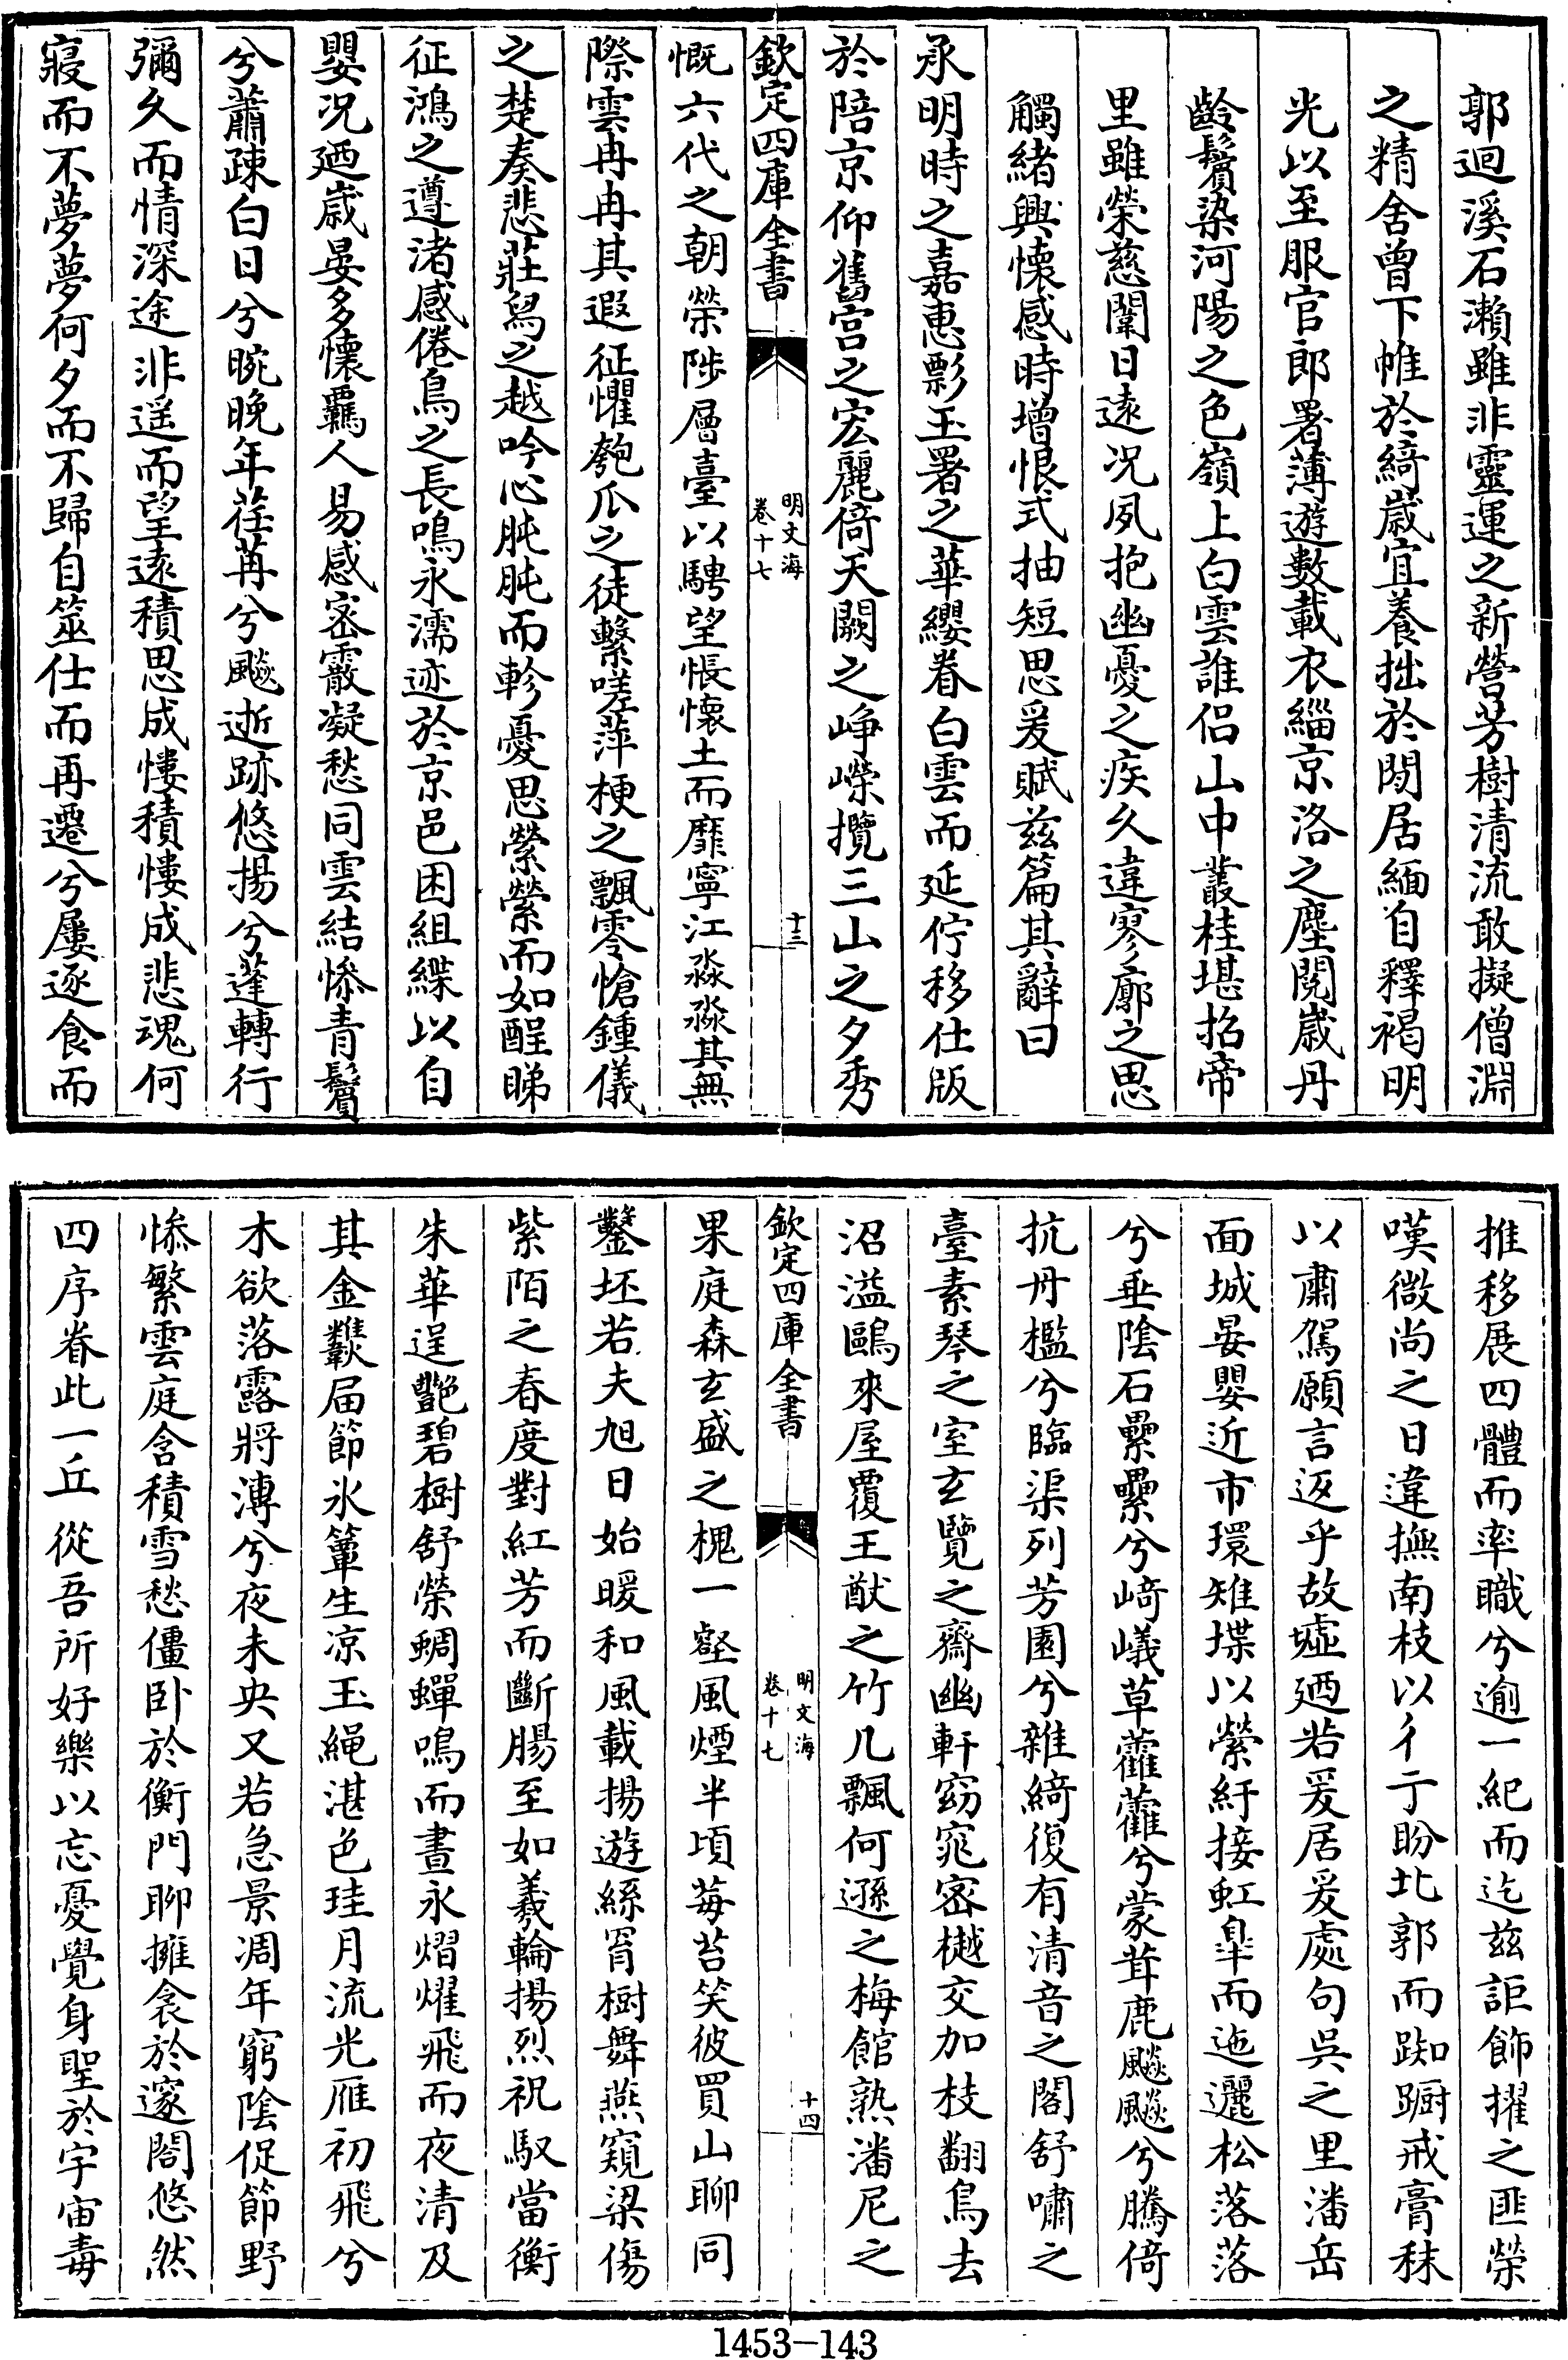 郭迴溪石瀨雖非靈運之新營芳樹清流敢擬僧淵
之精舍曾下帷於綺歲宜養拙於閒居緬自釋褐明
光以至服官郎署薄遊數載衣緇京洛之塵閱歲丹
齡鬢染河陽之色嶺上白雲誰侣山中叢桂堪招帝
里雖榮慈闈日遠况夙抱幽憂之疾久違寥廓之思
觸緒興懷感時增恨式抽短思爰賦兹篇其辭曰
承明時之嘉惠影玉署之華纓眷白雲而延佇移仕版
於陪京仰舊宫之宏麗倚天闕之崢嶸攬三山之夕秀
欽定四庫全書
明文海
卷十七
十三
慨六代之朝榮陟層臺以騁望悵懷土而靡寧江淼淼其無
際雲冉冉其遐征懼匏瓜之徒繫嗟萍梗之飄零愴鍾儀
之楚奏悲莊舄之越吟心肫肫而軫憂思縈縈而如酲睇
征鴻之遵渚感倦鳥之長鳴永濡迹於京邑困組緤以自
嬰况廼歲晏多懷羈人易感密霰凝愁同雲結慘青鬢
兮蕭疎白日兮晼晚年荏苒兮飈逝跡悠揚兮蓬轉行
彌久而情深途非遥而望遠積思成悽積悽成悲魂何
寢而不夢夢何夕而不歸自筮仕而再遷兮屢逐食而
推移展四體而率職兮逾一紀而迄兹詎飾擢之匪榮
嘆微尚之日違撫南枝以彳亍盼北郭而踟蹰戒膏秣
以肅駕願言返乎故墟廼若爰居爰處句吳之里潘岳
面城晏嬰近市環雉堞以縈紆接虹臯而迤邐松落落
兮垂陰石纍纍兮﨑嶬草藿藿兮蒙茸鹿飈飈兮騰倚
抗丹檻兮臨渠列芳園兮雜綺復有清音之閣舒嘯之
臺素琴之室玄覽之齋幽軒窈窕密樾交加枝翻鳥去
沼溢鷗來屋覆王猷之竹几飄何遜之梅館熟潘尼之
欽定四庫全書
明文海
卷十七
十四
果庭森玄盛之槐一壑風煙半頃莓苔笑彼買山聊同
鑿坯若夫旭日始暖和風載揚遊絲罥樹舞燕窺梁傷
紫陌之春度對紅芳而斷腸至如羲輪揚烈祝馭當衡
朱華逞艷碧樹舒榮蜩蟬鳴而晝永熠燿飛而夜清及
其金虀屆節氷簟生凉玉繩湛色珪月流光雁初飛兮
木欲落露將漙兮夜未央又若急景凋年窮陰促節野
慘繁雲庭含積雪愁僵卧於衡門聊擁衾於邃閣悠然
四序眷此一丘從吾所好樂以忘憂覺身聖於宇宙毒
1453-143